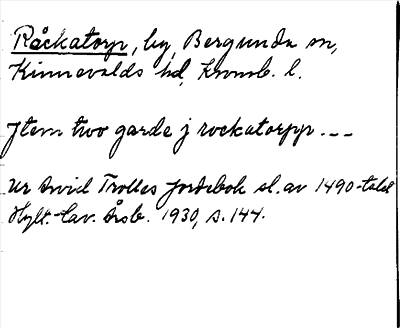 Råckatorp, by, Bergunda sn,
Kinnevalds hd, Kronob. l.
Jtem two garde j rockatorpp ---
Ur Arvid Trolles Jordebok sl. av 1490-talet
Hylt.-Cav. Årsb. 1930, s. 144.